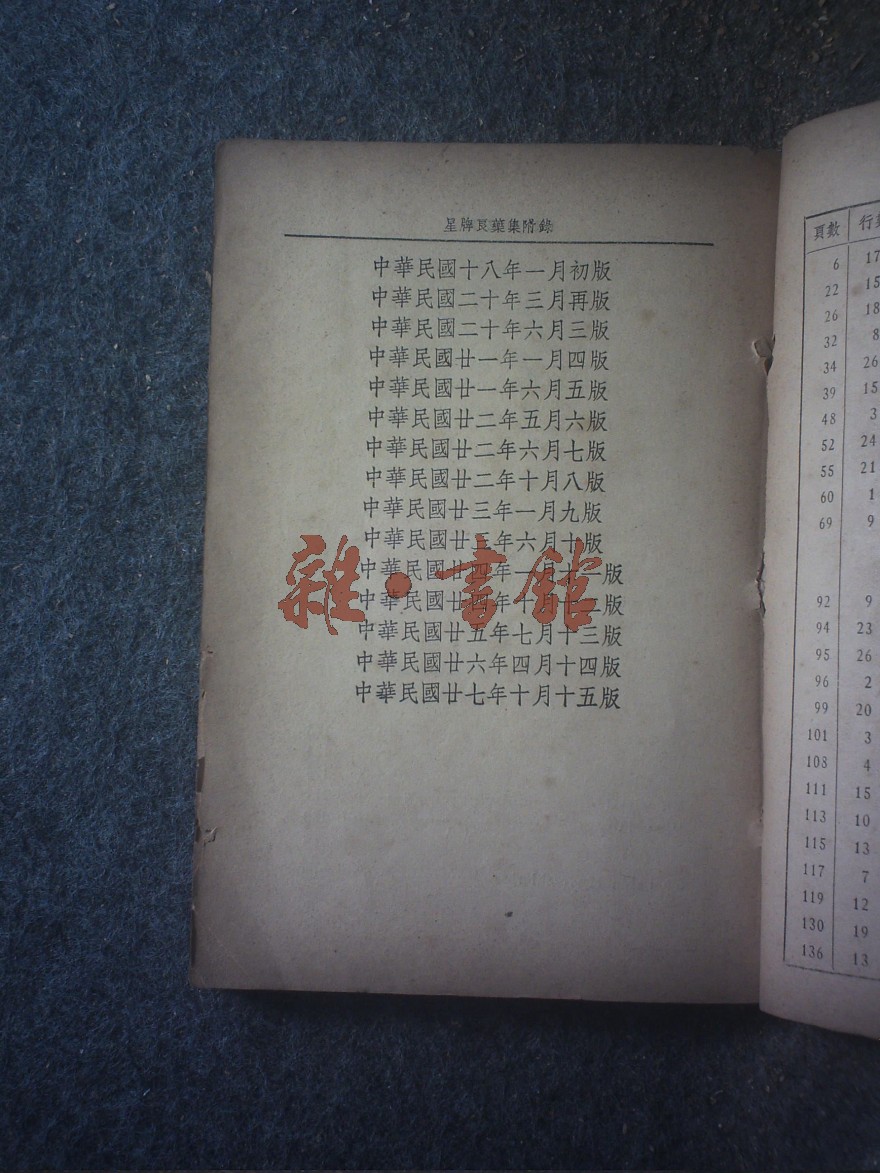 星牌良藥集附錄
中華民國十八年一月初版
中華民國二十年三月再版
中華民國二十年六月三版
中華民國廿一年一月四版
中華民國廿一年六月五版
中華民國廿二年五月六版
中華民國廿二年六月七版
中華民國廿二年十月八版
中華民國廿三年一月九版
中華民國廿三年六月十版
中華民國廿四年一月十一版
中華民國廿四年十月十二版
中華民國廿五年七月十三版
中華民國廿六年四月十四版
中華民國廿七年十月十五版
雜·書館
頁數 行
6 17
22 15
26 18
32 8
34 26
39 15
48 3
52 24
55 21
60 1
69 9
92 9
94 23
95 26
96 2
99 20
101 3
108 4
111 15
113 10
115 13
117 7
119 12
130 19
136 13